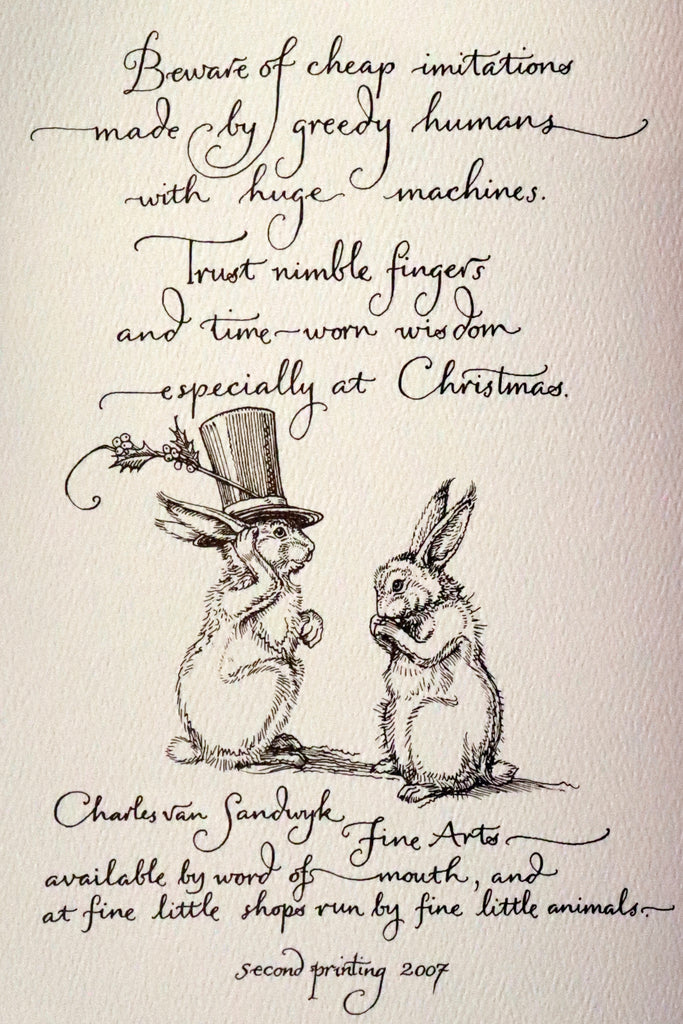 Beware of cheap imitations
made by greedy humans
with huge machines.
Trust nimble fingers
and time-worn wisdom
especially at Christmas.
Charles van Sandwyk
Fine Arts
available by word of mouth, and
at fine little shops run by fine little animals.
second printing 2007